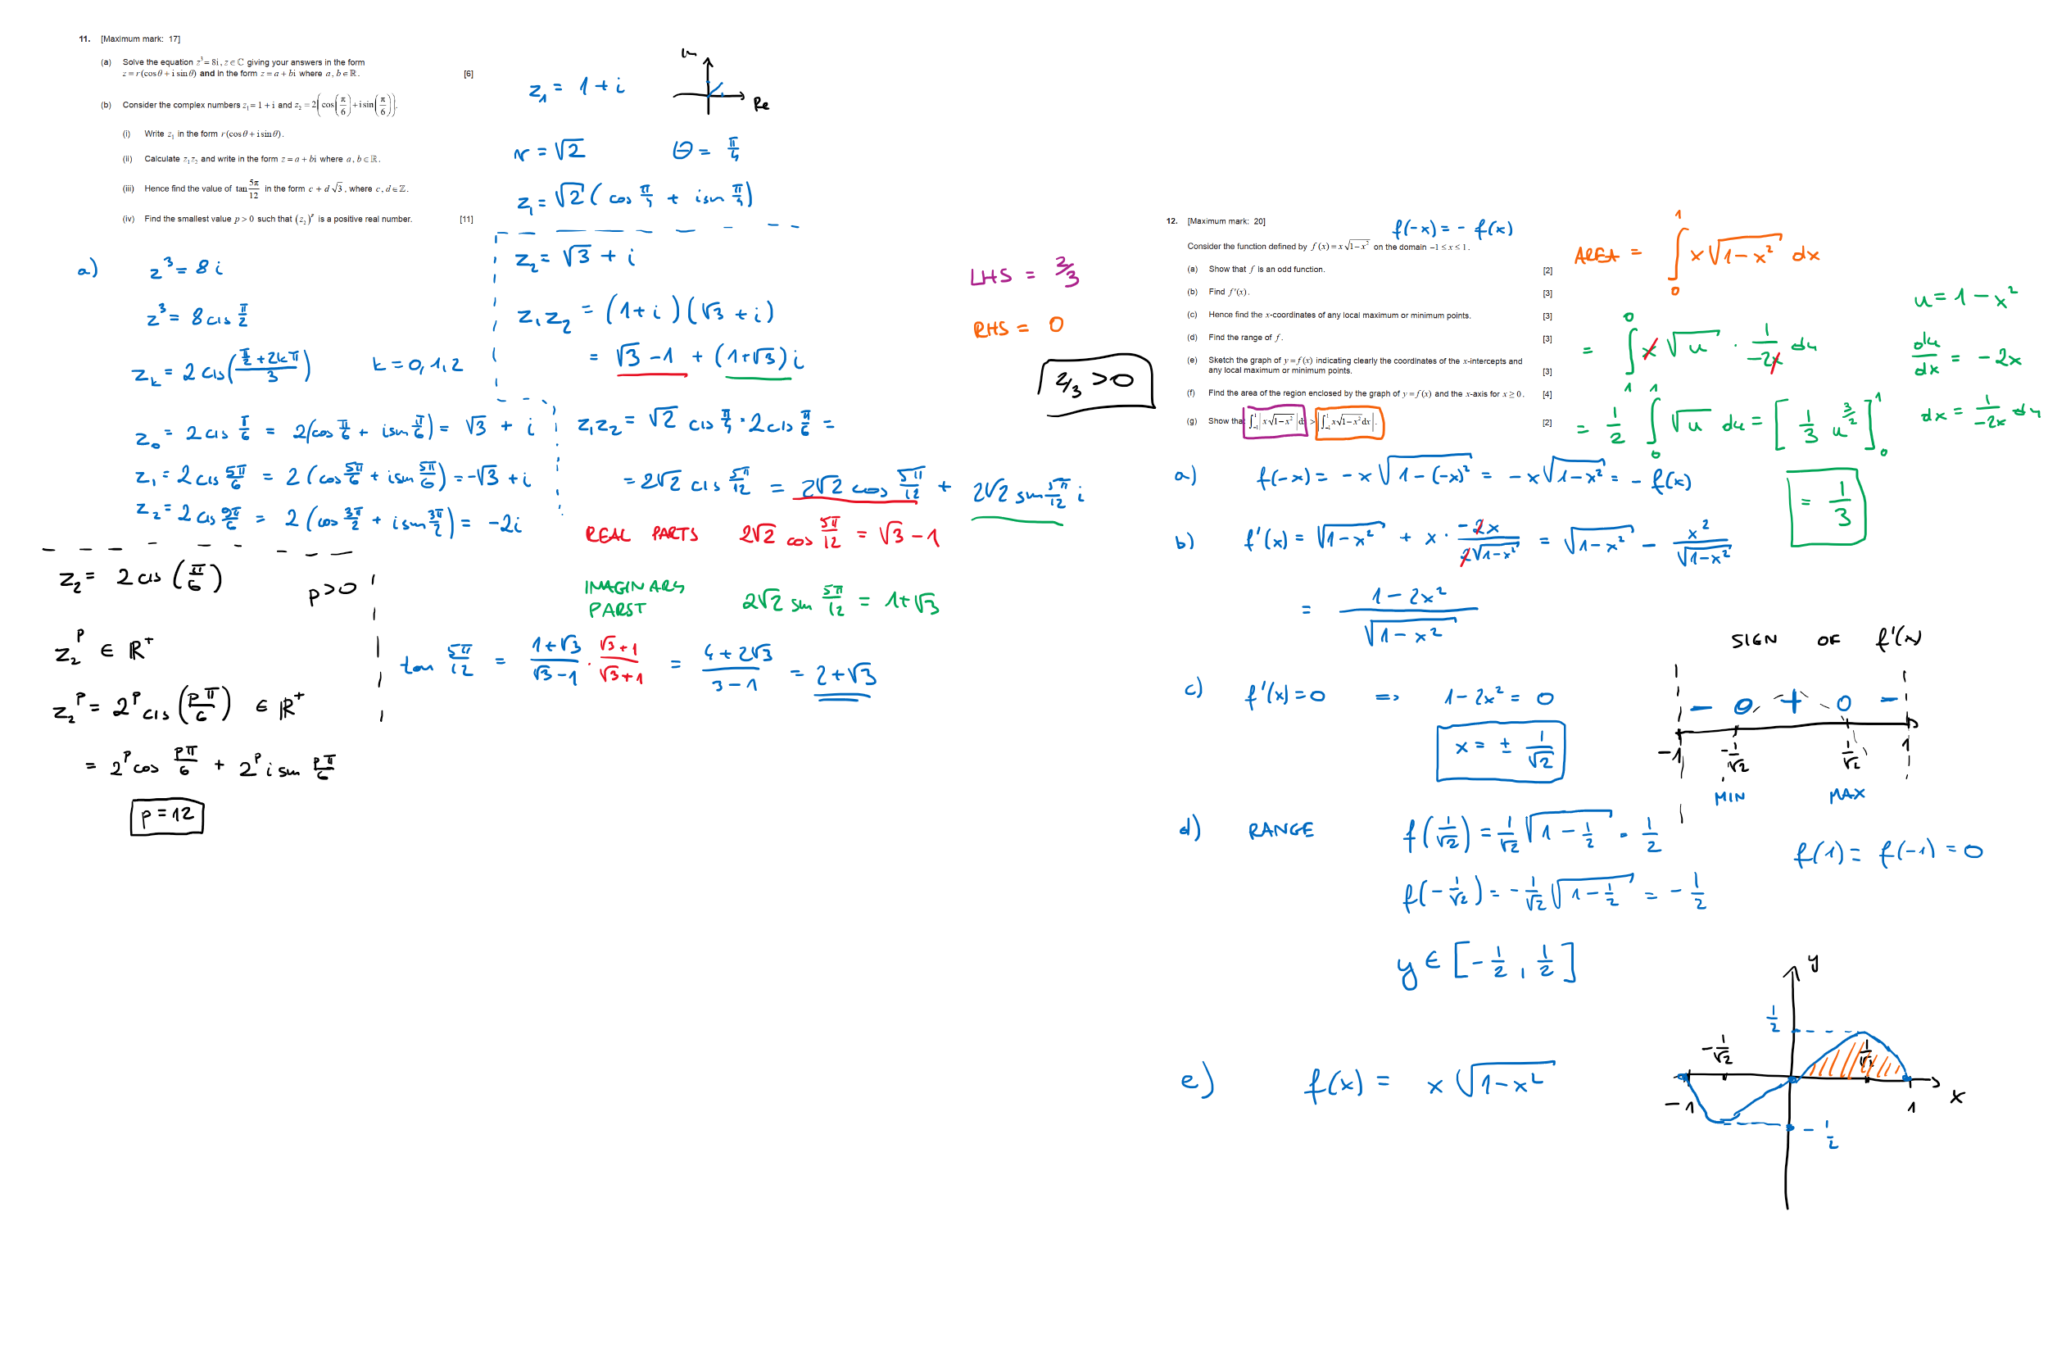 11. [Maximum mark: 17]
(a) Solve the equation z³ = 8i, z ∈ ℂ giving your answers in the form
z = r(cosθ + i sinθ) and in the form z = a + bi where a, b ∈ ℝ. [6]
(b) Consider the complex numbers z₁ = 1 + i and z₂ = 2(cos(π/6) + i sin(π/6)).
(i) Write z₁ in the form r(cosθ + i sinθ).
(ii) Calculate z₁z₂ and write in the form z = a + bi where a, b ∈ ℝ.
(iii) Hence find the value of tan 5π/12 in the form c + d√3, where c, d ∈ ℤ.
(iv) Find the smallest value p > 0 such that (z₂)^p is a positive real number. [11]
a) z³ = 8i
z³ = 8 cis π/2
z_k = 2 cis((π/2 + 2kπ)/3) k = 0, 1, 2
z₀ = 2 cis π/6 = 2(cos π/6 + i sin π/6) = √3 + i
z₁ = 2 cis 5π/6 = 2(cos 5π/6 + i sin 5π/6) = -√3 + i
z₂ = 2 cis 9π/6 = 2(cos 3π/2 + i sin 3π/2) = -2i
z₂ = 2 cis (π/6) p>0
z₂^p ∈ ℝ⁺
z₂^p = 2^p cis (pπ/6) ∈ ℝ⁺
= 2^p cos pπ/6 + 2^p i sin pπ/6
p = 12
z₁ = 1 + i
Im
Re
r = √2 θ = π/4
z₁ = √2 (cos π/4 + i sin π/4)
z₂ = √3 + i
z₁z₂ = (1+i)(√3 + i)
= √3 - 1 + (1+√3) i
z₁z₂ = √2 cis π/4 · 2 cis π/6 =
= 2√2 cis 5π/12 = 2√2 cos 5π/12 + 2√2 sin 5π/12 i
REAL PARTS 2√2 cos 5π/12 = √3 - 1
IMAGINARY
PARST 2√2 sin 5π/12 = 1+√3
tan 5π/12 = (1+√3)/(√3-1) · (√3+1)/(√3+1) = (4+2√3)/(3-1) = 2+√3
LHS = 2/3
RHS = 0
2/3 > 0
12. [Maximum mark: 20]
f(-x) = - f(x)
Consider the function defined by f(x) = x√(1-x²) on the domain -1 ≤ x ≤ 1.
(a) Show that f is an odd function. [2]
(b) Find f'(x). [3]
(c) Hence find the x-coordinates of any local maximum or minimum points. [3]
(d) Find the range of f. [3]
(e) Sketch the graph of y = f(x) indicating clearly the coordinates of the x-intercepts and
any local maximum or minimum points. [3]
(f) Find the area of the region enclosed by the graph of y = f(x) and the x-axis for x ≥ 0. [4]
(g) Show that ∫₋₁¹ |x√(1-x²)| dx > |∫₋₁¹ x√(1-x²) dx|. [2]
AREA = ∫₀¹ x√(1-x²) dx
= ∫₁⁰ x√u · 1/(-2x) du
= 1/2 ∫₀¹ √u du = [1/3 u^(3/2)]₀¹
= 1/3
u = 1 - x²
du/dx = -2x
dx = 1/(-2x) du
a) f(-x) = -x√(1-(-x)²) = -x√(1-x²) = - f(x)
b) f'(x) = √(1-x²) + x · (-2x)/(2√(1-x²)) = √(1-x²) - x²/√(1-x²)
= (1-2x²)/√(1-x²)
c) f'(x) = 0 => 1-2x² = 0
x = ± 1/√2
SIGN OF f'(x)
- 0 + 0 -
-1 -1/√2 1/√2 1
MIN MAX
d) RANGE f(1/√2) = 1/√2 √(1-1/2) = 1/2
f(1) = f(-1) = 0
f(-1/√2) = -1/√2 √(1-1/2) = -1/2
y ∈ [-1/2, 1/2]
e) f(x) = x√(1-x²)
y
1/2
-1/√2 1/√2
-1 1 x
-1/2